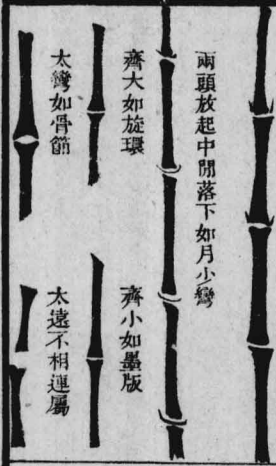 兩頭放起中間落下如月少彎
齊大如旋環
齊小如墨版
太彎如骨節
太遠不相連屬